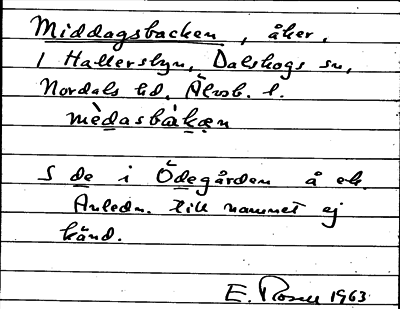 Middagsbacken, åker,
i Hallersbyn, Dalskogs sn,
Nordals hd. Älvsb. l.
mèdasbàkæn
S de i Ödegården å ek.
Anledn. till namnet ej
känd.
E. Rosell 1963